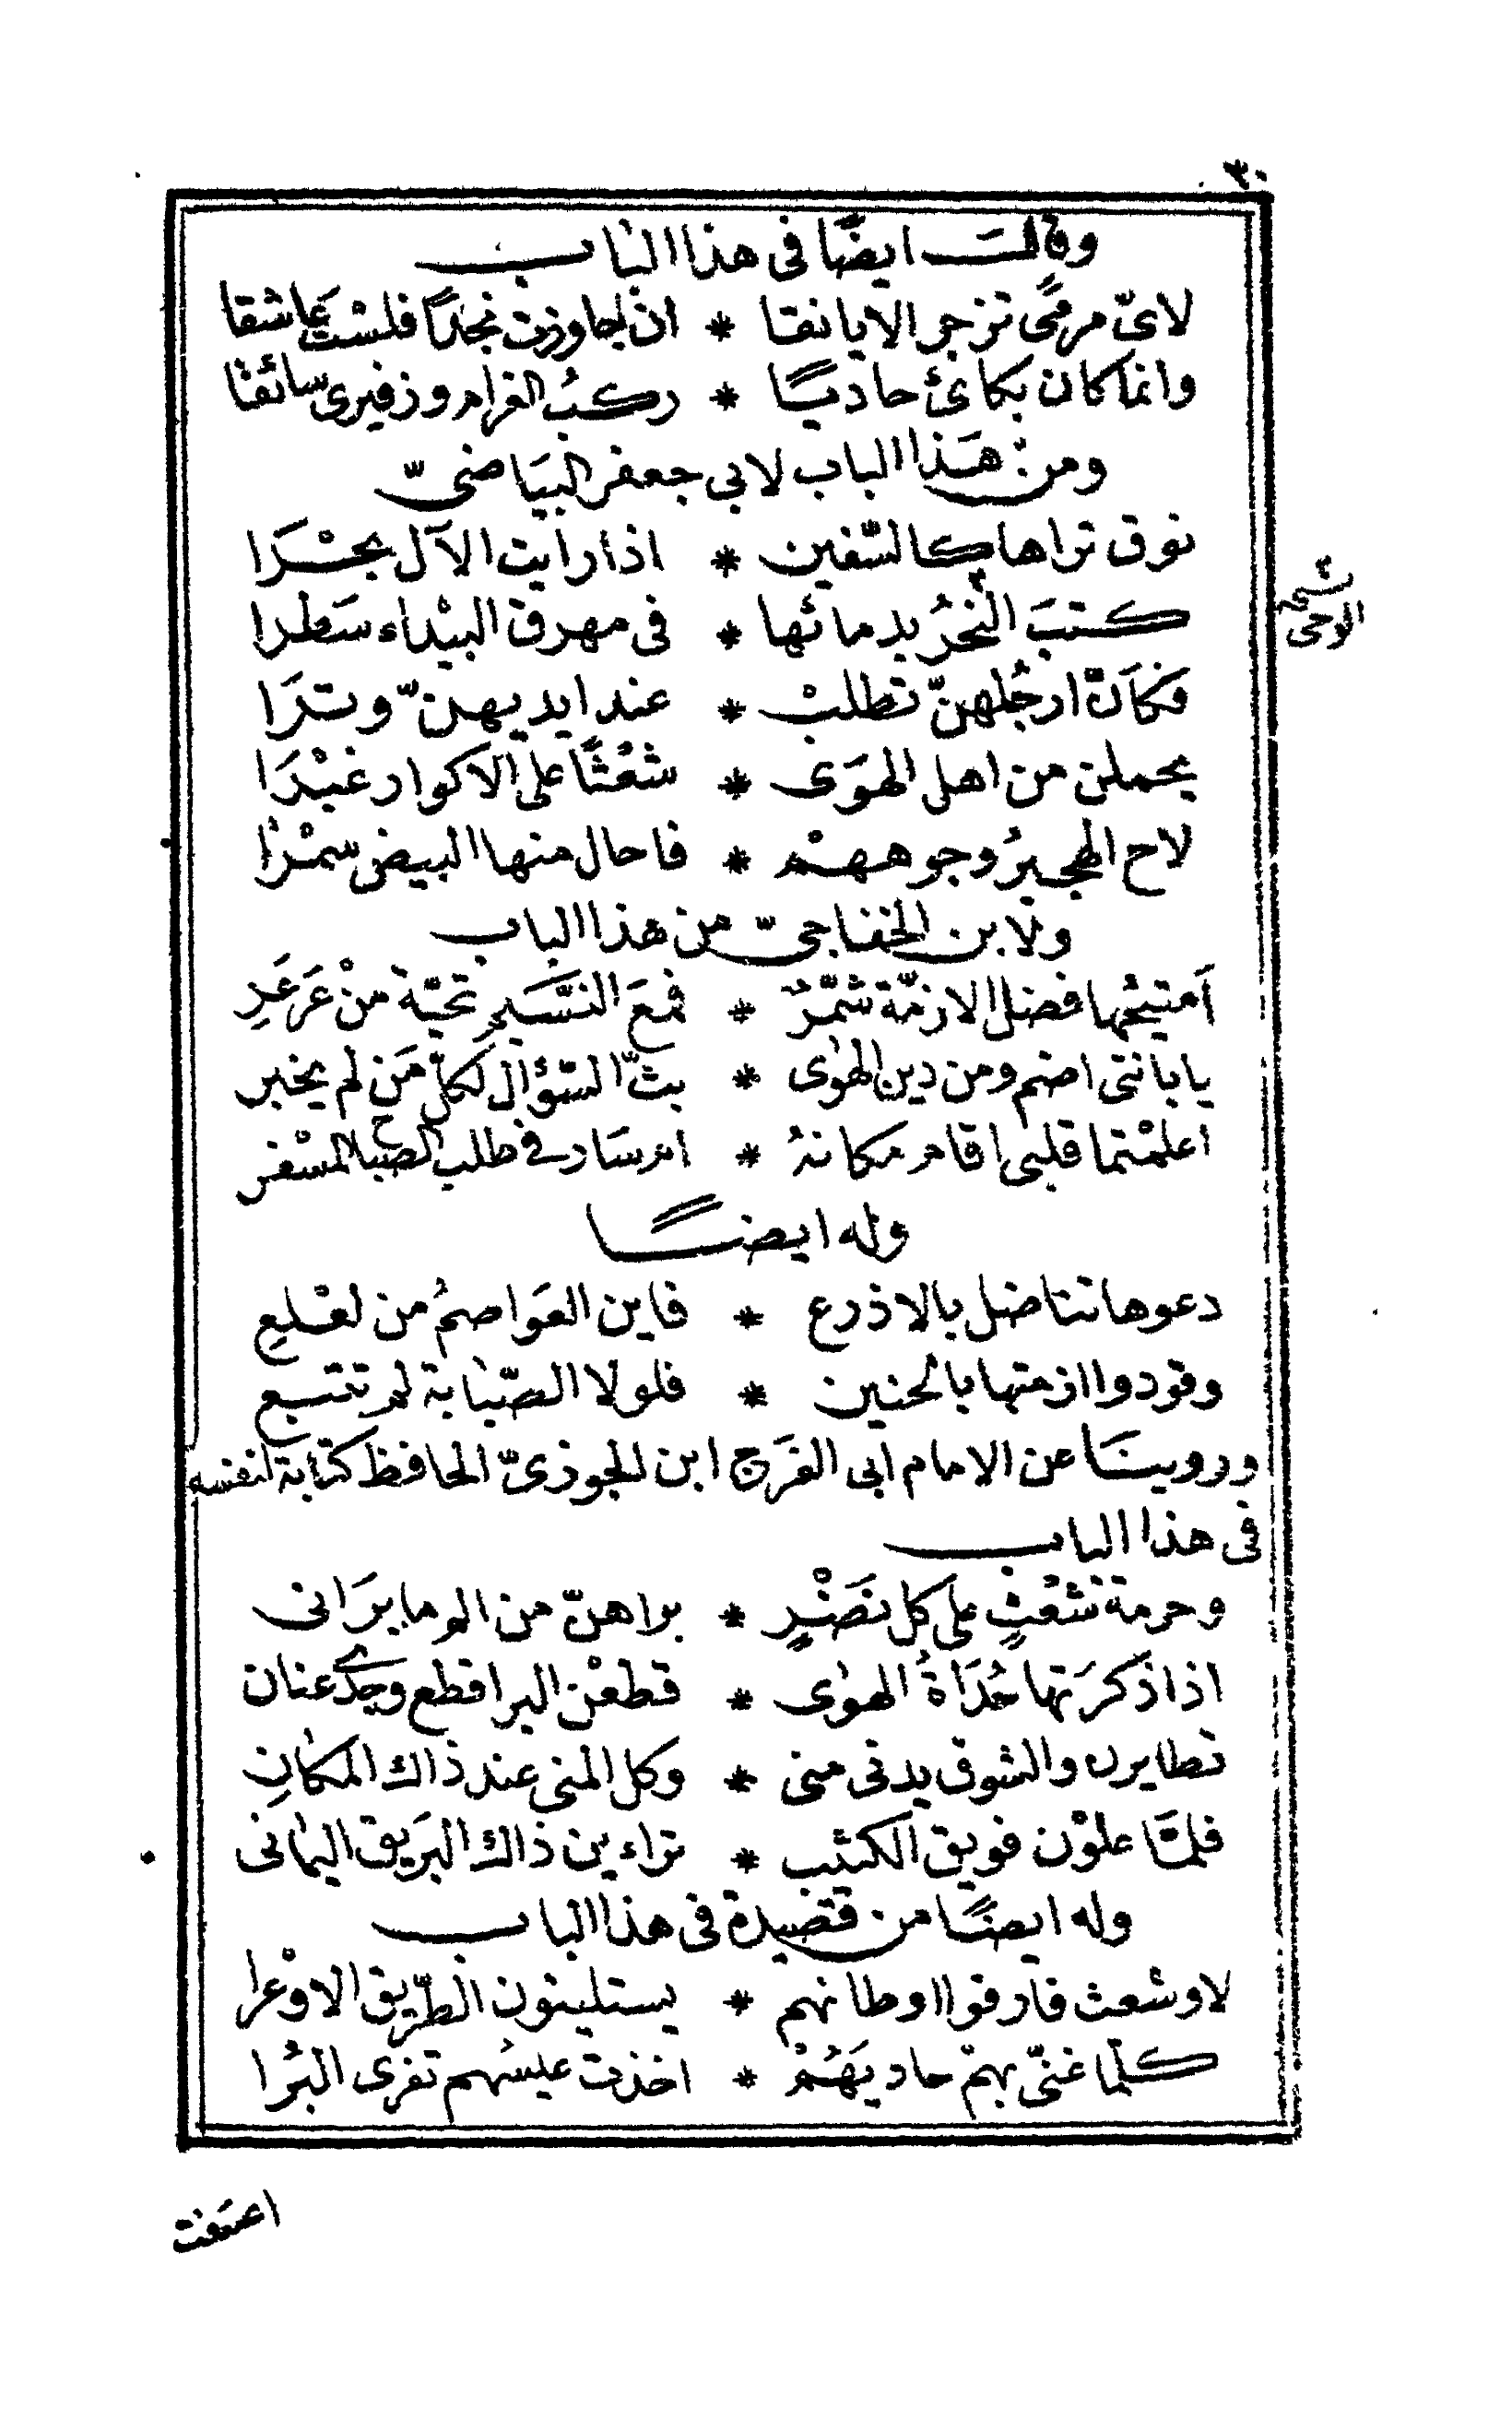 ٣٠
وقلت ايضًا فى هذا الباب
لاىّ مرمًى تزجر الايانقا * ان لجاوزت نجدًا فلست عاشقا
وانما كان بكائى حاديًا * ركب الغرام وزفيرى سائقا
ومن هذا الباب لابي جعفر البيَاضىّ
نوق تراها كالسّفين * اذا رايت الآل بحْرَا
كتبَ النحرُ بدمائها * فى مهرق البيْداء سَطرا
نسخة الوحى
فكاَنّ ارجُلهنّ تطلبْ * عند ايديهنّ وترَا
يحملن من اهل الهوَى * شعْثًا على الاكوار غبْرَا
لاح الهجيرُ وجوههمْ * فاحال منها البيض سمْرا
ولابن الخفاجىّ من هذا الباب
اَمتيحُها فضل الازمّة شمّرٌ * فمعَ النسَّيمِ تحيّة منْ عَرعَرِ
يا بانتى اضم ومن دين الهوٰى * بثّ السّؤال لكلّ مَن لم يخبر
اعلمْتما قلبى اقام مكانهُ * ام سَار فى طلب الصباح المسْفر
وله ايضًا
دعوها تناضل بالاذرع * فاين العَواصمُ من لعْلعِ
وقودوا ازمتها بالحنين * فلولا الصّبابة لم تتبع
وروينَا عن الامام ابى الفرَج ابن الجوزىّ الحافظ كتابة لنفسه
فى هذا الباب
وحرمة شعْثٍ على كل نضْرٍ * براهنّ من الم ما يرَانى
اذا ذكرَتها حُدَاةُ الهوٰى * قطعْن البرا قطع وجدى عنان
تطايرن والشوق يدنى منى * وكل المنى عند ذاك المكانِ
فلمَّا علوْن فويق الكثيب * تراءين ذاك البَريق اليمانى
وله ايضًا من قصيدة فى هذا الباب
لاوشعث فارقوا اوطانهم * يستلينون الطّريق الاوْعرا
كلما غنّى بهم حاديهُمْ * اخذت عيسُهم تفرى البُرا
اعنفت